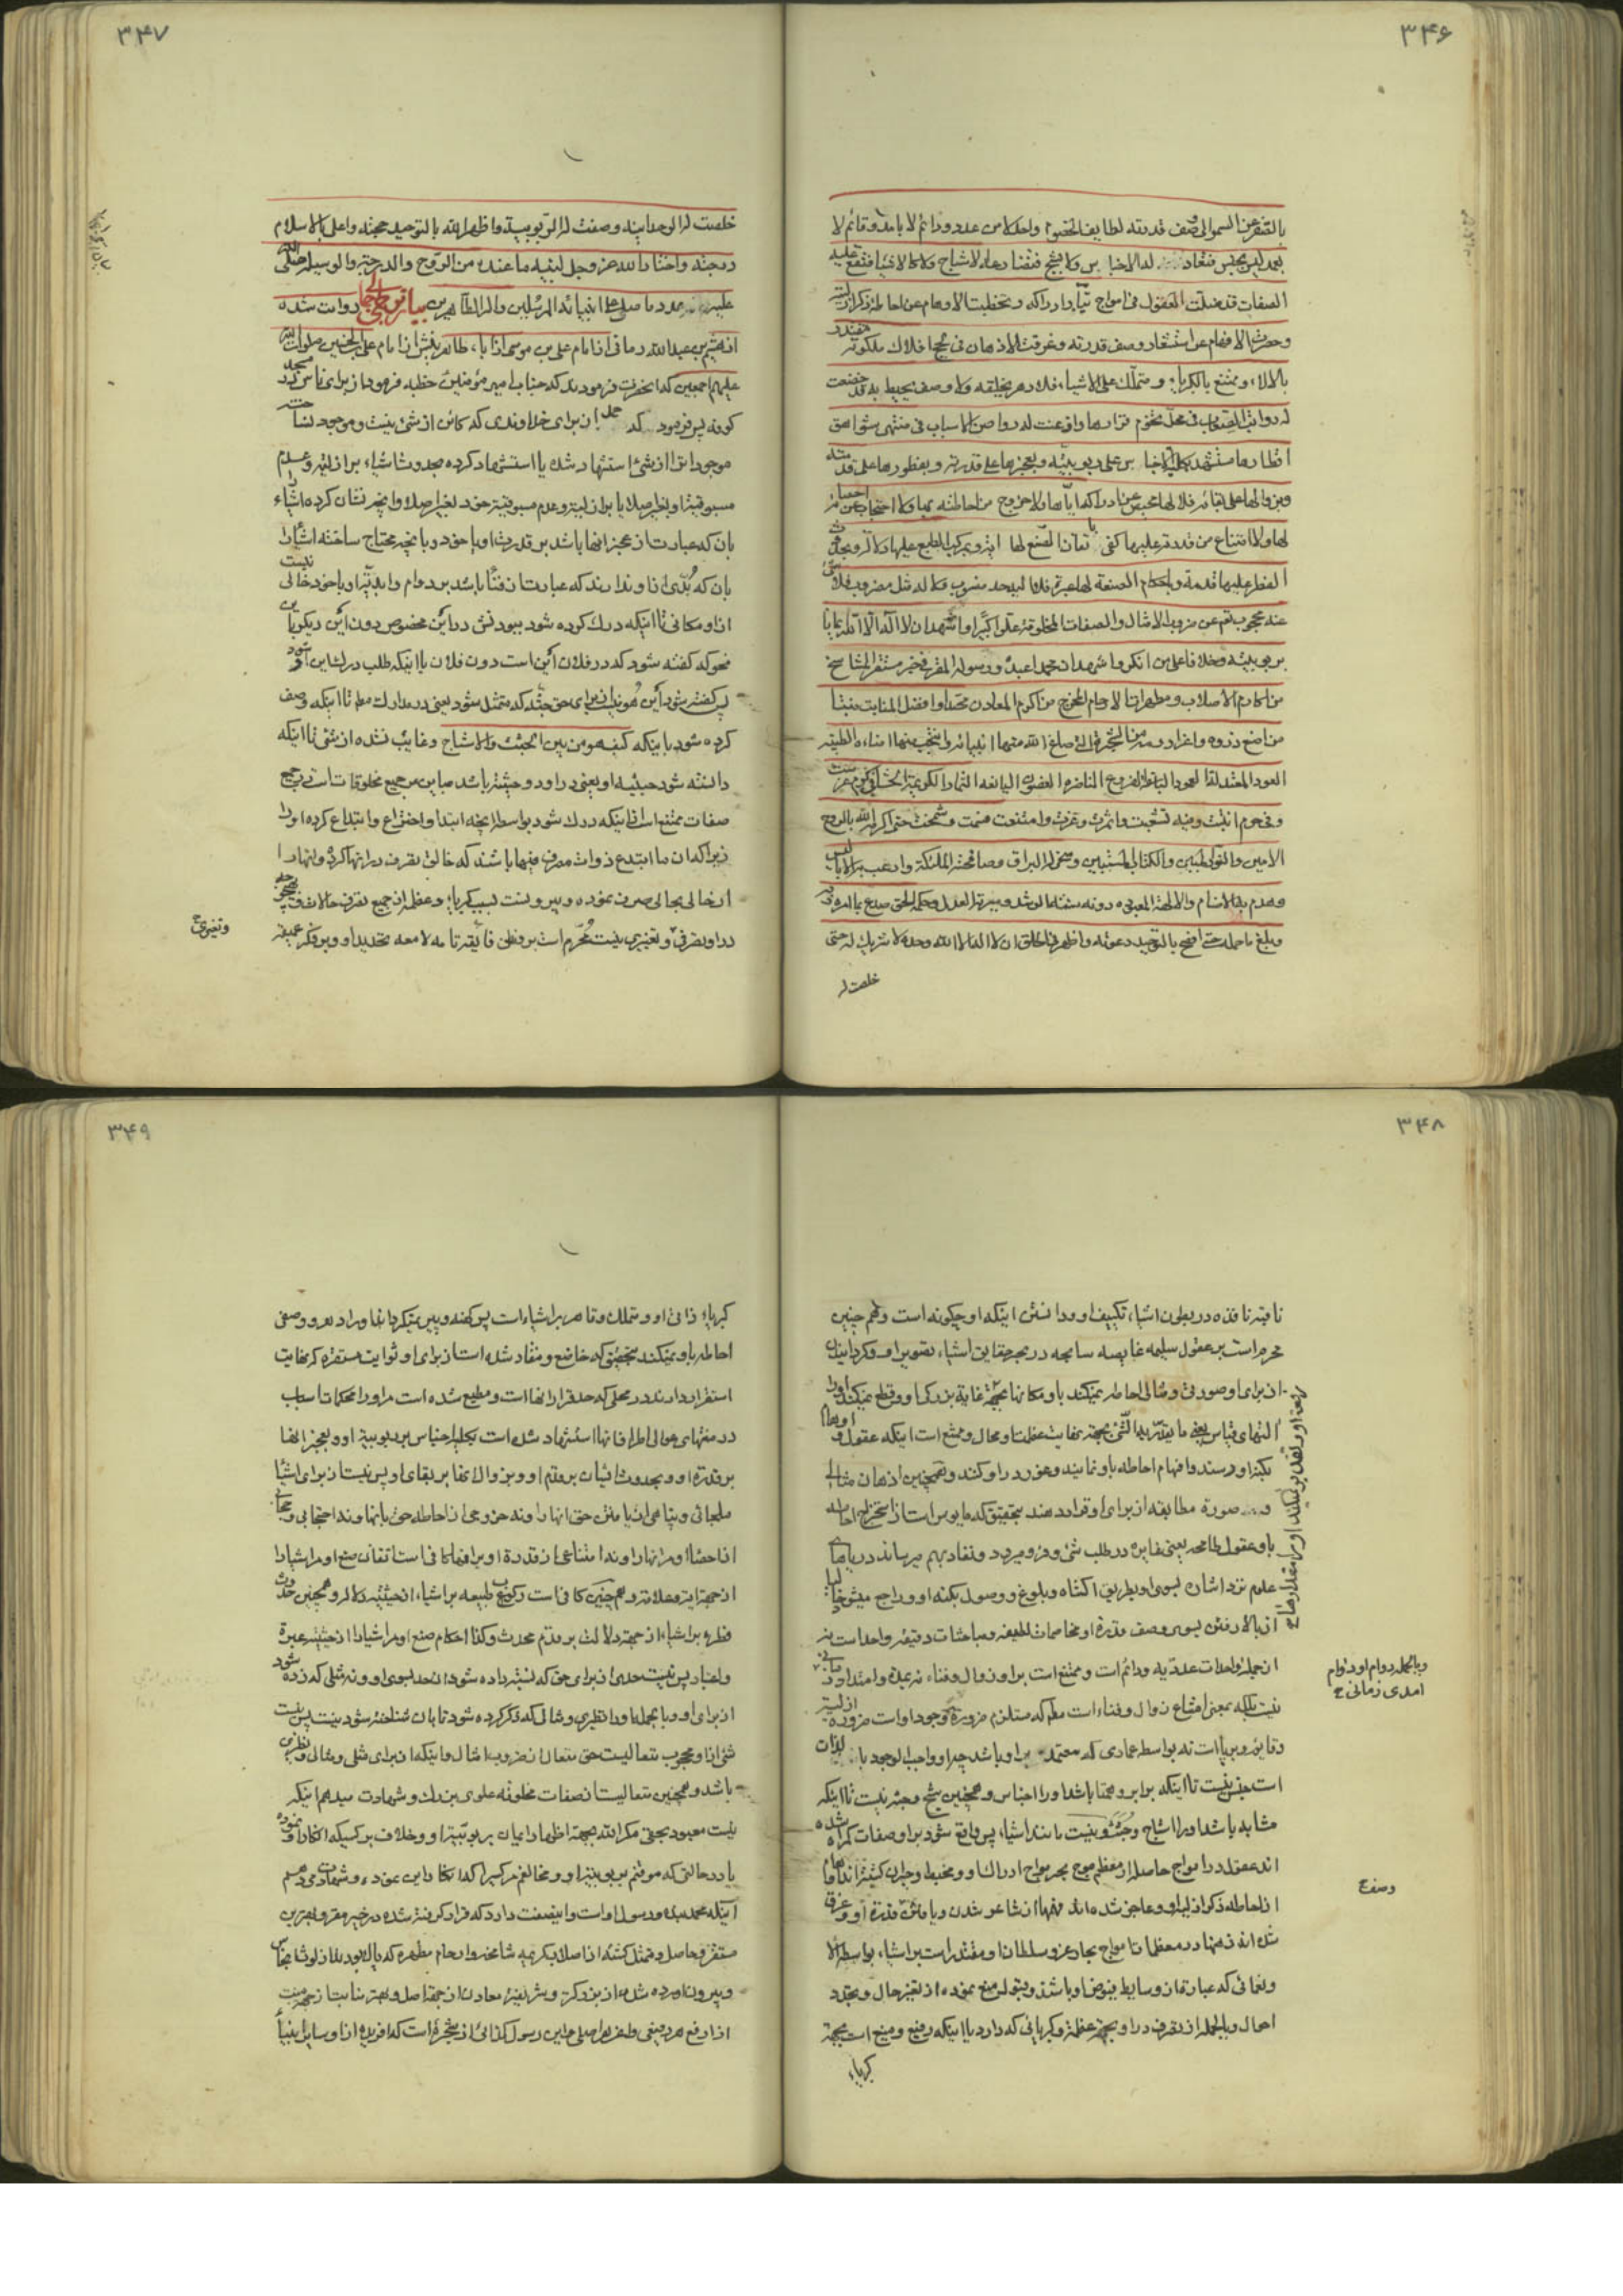 ۳۴۶
بالتفرعن السمو الی وصف قدرته لطایف الخصوم واحد لا من عدد و دائم لا بامد و قائم لا
بعمد لیس بجنس فتعادله الاجناس ولا بشبح فتضارعه الاشباح ولا کالاشیاء فتقع علیه
الصفات قد ضلت العقول فی امواج تیار ادراکه و تحیرت الاوهام عن احاطة ذکر ازلیته
وحصرت الافهام عن استشعار وصف قدرته وغرقت الاذهان فی لجج افلاک ملکوته مقتدر
بالالاء و ممتنع بالکبریاء و متملک علی الاشیاء فلا دهر یخلقه ولا وصف یحیط به قد خضعت
له رواتب الصعاب فی محل تخوم قرارها واذعنت له رواصن الاسباب فی منتهی شواهق
اقطارها مستشهد بکلیة الاجناس علی ربوبیته وبعجزها علی قدرته وبفطورها علی قدمته
وبزوالها علی بقائه فلا لها محیص عن ادراکه ایاها ولا خروج من احاطته بها ولا احتجاب عن احصائه
لها ولا امتناع من قدرته علیها کفی باتقان الصنع لها ایة وبمرکب الطبع علیها دلالة وبحدوث
الفطر علیها قدمة وباحکام الصنعة لها عبرة فلا الیه حد منسوب ولا له مثل مضروب ولا شیء
عنه بمحجوب تعالی عن ضرب الامثال والصفات المخلوقة علوا کبیرا واشهد ان لا اله الا الله ایمانا
بربوبیته وخلافا علی من انکره واشهد ان محمدا عبده ورسوله المقر فی خیر مستقر المتناسخ
من اکارم الاصلاب ومطهرات الارحام المخرج من اکرم المعادن محتدا وافضل المنابت منبتا
من امنع ذروة واعز ارومة من الشجرة التی صاغ الله منها انبیائه وانتجب منها امنائه الطیبة
العود المعتدلة العمود الباسقة الفروع الناضرة الغصون الیانعة الثمار الکریمة الحشا فی کرم غرست
وفی حرم انبتت وفیه تشعبت واثمرت وعزت وامتنعت فسمت وشمخت حتی اکرمه الله بالروح
الامین والنور المبین والکتاب المستبین وسخر له البراق وصافحته الملئکة وارعب به الابالیس
وهدم به الاصنام والالهة المعبودة دونه سنته الرشد وسیرته العدل وحکمه الحق صدع بما امره ربه
وبلغ ما حمله حتی افصح بالتوحید دعوته واظهر فی الخلق ان لا اله الا الله وحده لا شریک له حتی
خلصت له
۳۴۷
خلصت له الوحدانیة وصفت له الربوبیة واظهر الله بالتوحید حجته واعلی بالاسلام
درجته واختار الله عز وجل لنبیه ما عنده من الروح والدرجة والوسیلة صلی الله
علیه عدد ما صلی علی انبیائه المرسلین واله الطاهرین بیان روات شده
از هیثم بن عبدالله رمانی از امام علی بن موسی از اباء طاهرینش از امام علی بن الحسین صلوات الله
علیهم اجمعین که انحضرت فرمودند که جناب امیر مؤمنین خطبه فرمود از برای ناس در مسجد
کوفه پس فرمود که حمد از برای خداوندی که کائن از شیء نیست و موجود نساخته
موجودات را از شیء استشهاد شده یا استشهاد کرده بحدوث اشیاء بر ازلیت و عدم
مسبوقیت او بغیر اصلا یا بر ازلیت و عدم مسبوقیت خود بغیر اصلا و بانچه نشان کرده اشیاء را
بان که عبارت از عجز انها باشد بر قدرت او یا خود و بانچه محتاج ساخته اشیا را
بان که بدی از او ندارند که عبارت از فنا باشد بر دوام و ابدیت او یا خود خالی نیست
از او مکانی تا اینکه درک کرده شود ببودنش در این مخصوص دون این دیگر یا
نحوی که گفته شود که در فلان این است دون فلان یا اینکه طلب درک این او شود
پس گفته شود این هو و نیست از برای حق جثه که متمثل شود یعنی در مدارک مطم تا اینکه وصف
کرده شود باینکه کیف هو من بین الجثث والاشباح و غایب نشده از شیء تا اینکه
دانسته شود حیثیت او یعنی در او درو حیثیت باشد مباین من جمیع مخلوقات است در جمیع
صفات ممتنع است از اینکه درک شود بواسطه انچه ابتدا و اختراع و ابتداع کرده او را
زیرا که ان ما ابتدع ذوات مصرف فیهما باشند که خالق تصرف در انها کرده و انها را
از حالی بحالی صرف نموده و بیرونست بسبب کبریاء و عظمة از جمیع تصرف حالات
در او تصرفی و تغییری نیست محرم است بر فطن فائقه تامه لامعه تحدید او و بر فکر عمیقه
وتغییری ح
۳۴۸
ثاقبه نافذه در بطون اشیاء تکییف او و دانستن اینکه او چگونه است و هم چنین
محرم است بر عقول سلیمه غایصه سابحه در بحر حقایق اشیاء تصویر او و گردانیدن
از برای او صورتی و مثالی احاطه نمیکند باو مکانها بجهة غایة بزرگی او و قطع نمیکند او را
انتهای قیاس یعنی ما یقدر به الشیء بجهة نهایت عظمت او محال و ممتنع است اینکه عقول و اوهام
بکنه او رسند و افهام احاطه باو نمایند و غور در او کنند و همچنین اذهان مثالی
و صورة مطابقه از برای او قرار دهند بتحقیق که مایوس است از استخراج احاطه
باو عقول طامحه یعنی غایره در طلب شیء و فرو میرود و نفاد بهم میرساند دریاهای
علوم نزد اشاره بسوی او بطریق اکتناه و بلوغ و وصول بکنه او و راجع میشود
از بالا رفتن بسوی وصف قدرة او مخاصمات لطیفه و مباحثات دقیقه واحد است نه
از جمله واحدات عددیه و دائم است و ممتنع است بر او زوال و فناء نه بمدة و امتداد زمانی
نیست بلکه بمعنی امتناع زوال و فناء است مطم که مستلزم ضرورة وجود او است ضرورة ازلیة
وقایم و برپاست نه بواسطه عمادی که معتمد بر او باشد چرا و واجب الوجود بالذات
است جنس نیست تا اینکه برابر و همتا باشد او را اجناس و همچنین شبح و جثه نیست تا اینکه
مشابه باشد او را اشباح وجثث و نیست مانند اشیاء پس واقع شود بر او صفات گمراه شده
اند عقول در امواج حاصله از معظم موج بحر مواج ادراک او و متحیر
از احاطه ذکر ازلیة او و عاجز شده اند فهمها از استشعار شدن و یافتن قدرة او و غرق
شده اند ذهنها در معظمات امواج بحار عز و سلطان او مقتدر است بر اشیاء بواسطه الاء
ونعمائی که عبارة از وسایط فیوض او باشند و بتوان منع نموده از تغیر حال و تجدد
احوال و بالجمله از تصرف در او بجهة عظمة و کبریائی که دارد یا اینکه رفیع و منیع است بجهة
کبریاء
وبالجمله دوام او دوام
امدی زمانی ح
وصف ح
۳۴۹
کبریاء ذاتی او و متملک و قاهر بر اشیاء است پس کهنه و پیر نمیگرداند او را دهر و وصفی
احاطه باو نمیکند بتحقیق که خاضع و منقاد شده است از برای او ثوابت مستقره که نهایت
استقرار دارند در محلی که حد قرار انها است و مطیع شده است مر او را محکمات اسباب
در منتهای عوالی اطراف انها استشهاد شده است بکلیة اجناس بر ربوبیة او و بعجز انها
بر قدرة او و بحدوث ایشان بر قدم او و بزوال انها بر بقای او پس نیست از برای اشیا
ملجائی و پناهی از یافتن حق انها را و نه خروجی از احاطه حق بانها و نه احتجابی و حجابی
از احصاء او مر انها را و نه امتناعی از قدرة او بر انها کافی است اتقان صنع او مر اشیا را
از جهة ایة و علامة و همچنین کافی است رکوب طبیعه بر اشیاء از حیثیة دلالة و همچنین حدوث
فطرة بر اشیاء از جهة دلالت بر قدم محدث و کذا احکام صنع او مر اشیا را از حیثیة عبرة
واعتبار پس نیست حدی از برای حق که نسبت داده شود ان حد بسوی او و نه مثلی که زده شود
از برای او و بالجمله او را نظیری و مثالی که ذکر کرده شود تا بان شناخته شود نیست پس نیست
شیء از او محجوب متعالیست حق متعال از ضرب امثال و اینکه از برای مثلی و مثالی و نظیری
باشد و همچنین متعالیست از صفات مخلوقه علوی بزرک و شهادت میدهم اینکه
نیست معبود بحق مگر الله بجهة اظهار ایمان بربوبیة او و خلاف بر کسیکه انکار او نموده
یا در حالتی که مومنم بربوبیة او و مخالفم مر کسیرا که انکار این نموده و شهادت میدهم
اینکه محمد بنده و رسول او است و اینصفت دارد که قرار گرفته شده در خیر مقر و بهترین
مستقر و حاصل و متمثل گشته از اصلاب کریمه شامخه و ارحام مطهره که پاک بودند از لوث انجاس
وبیرون اورده شده از بزرگتر و شریفترین معادن از جهة اصل و بهترین منابت از جهة منبت
از ارفع هر رفیعی و اعز هر اصلی و این رسول کذائی از شجرة است که افریده از او سایر انبیا